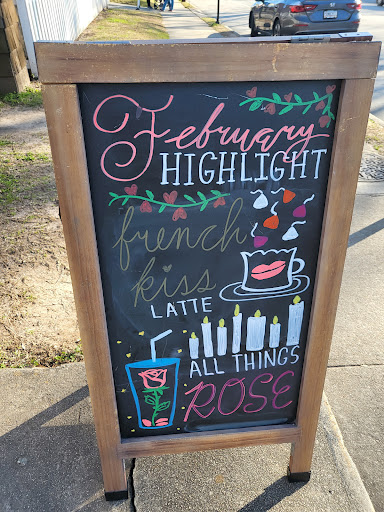 February
HIGHLIGHT
french
kiss
LATTE
ALL THINGS
ROSE